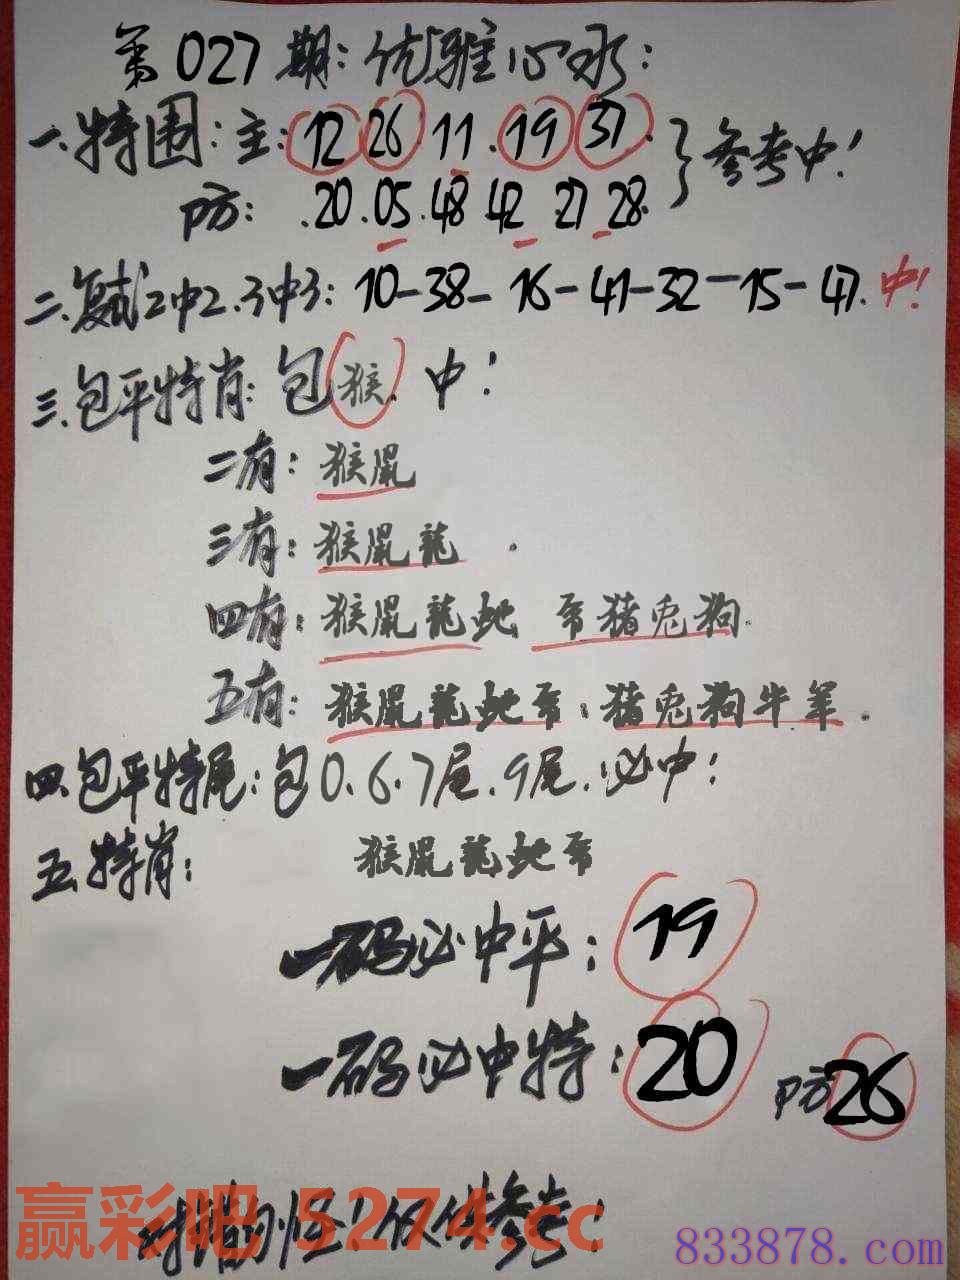 第027期:优雅心水:
一.特围:主:12 26.11.19 37.}参考中!
防:.20.05.48 42 27 28.
二.复式2中2.3中3:10-38-16-41-32-15-47.中!
三.包平特肖:包猴.中!
二有:猴鼠
三有:猴鼠龍.
四有:猴鼠龍蛇 马猪兔狗.
五有:猴鼠龍蛇马.猪兔狗牛羊.
四.包平特尾:包0.6.7尾.9尾.必中!
五.特肖: 猴鼠龍蛇马
一码必中平:19
一码必中特:20 防26
对错勿怪!仅供参考!
赢彩吧 5274.cc
833878.com